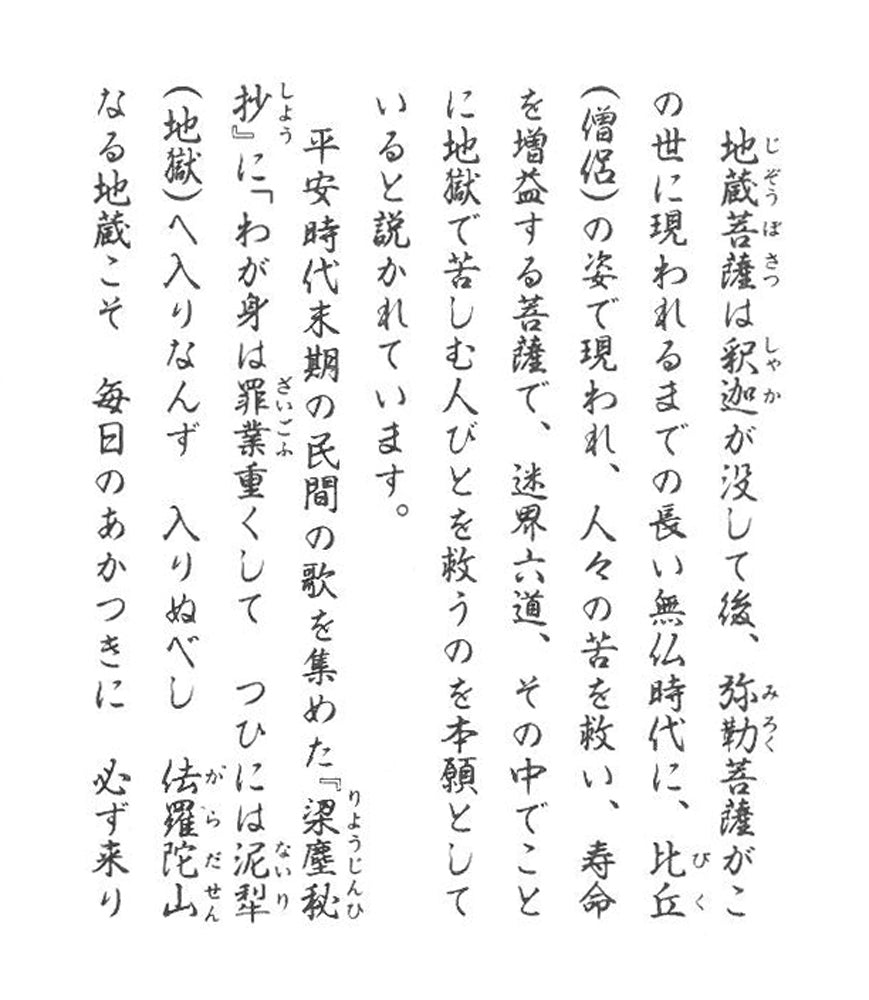 地蔵菩薩は釈迦が没して後、弥勒菩薩がこ
の世に現われるまでの長い無仏時代に、比丘
(僧侶)の姿で現われ、人々の苦を救い、寿命
を増益する菩薩で、迷界六道、その中でこと
に地獄で苦しむ人びとを救うのを本願として
いると説かれています。
平安時代末期の民間の歌を集めた『梁塵秘
抄』に「わが身は罪業重くして　つひには泥犁
(地獄)へ入りなんず　入りぬべし　佉羅陀山
なる地蔵こそ　毎日のあかつきに　必ず来り